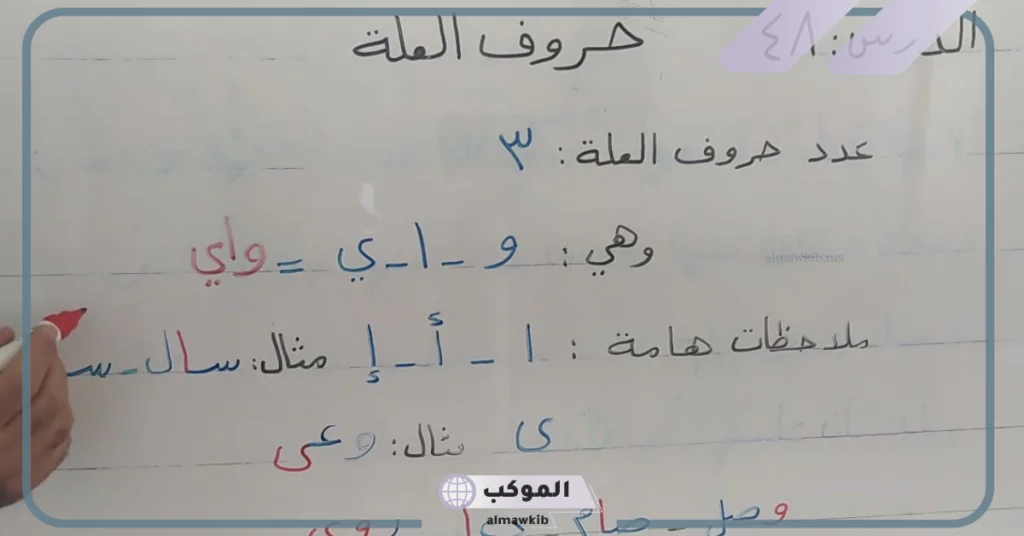 الدرس: ٤٨ حروف العلة
عدد حروف العلة: ٣
وهي: و - ا - ي = واي
almawkib.net
ملاحظات هامة: ا - أ - إ مثال: سال - سـ
ى مثال: وعى
وصل - صام
الموكب
almawkib